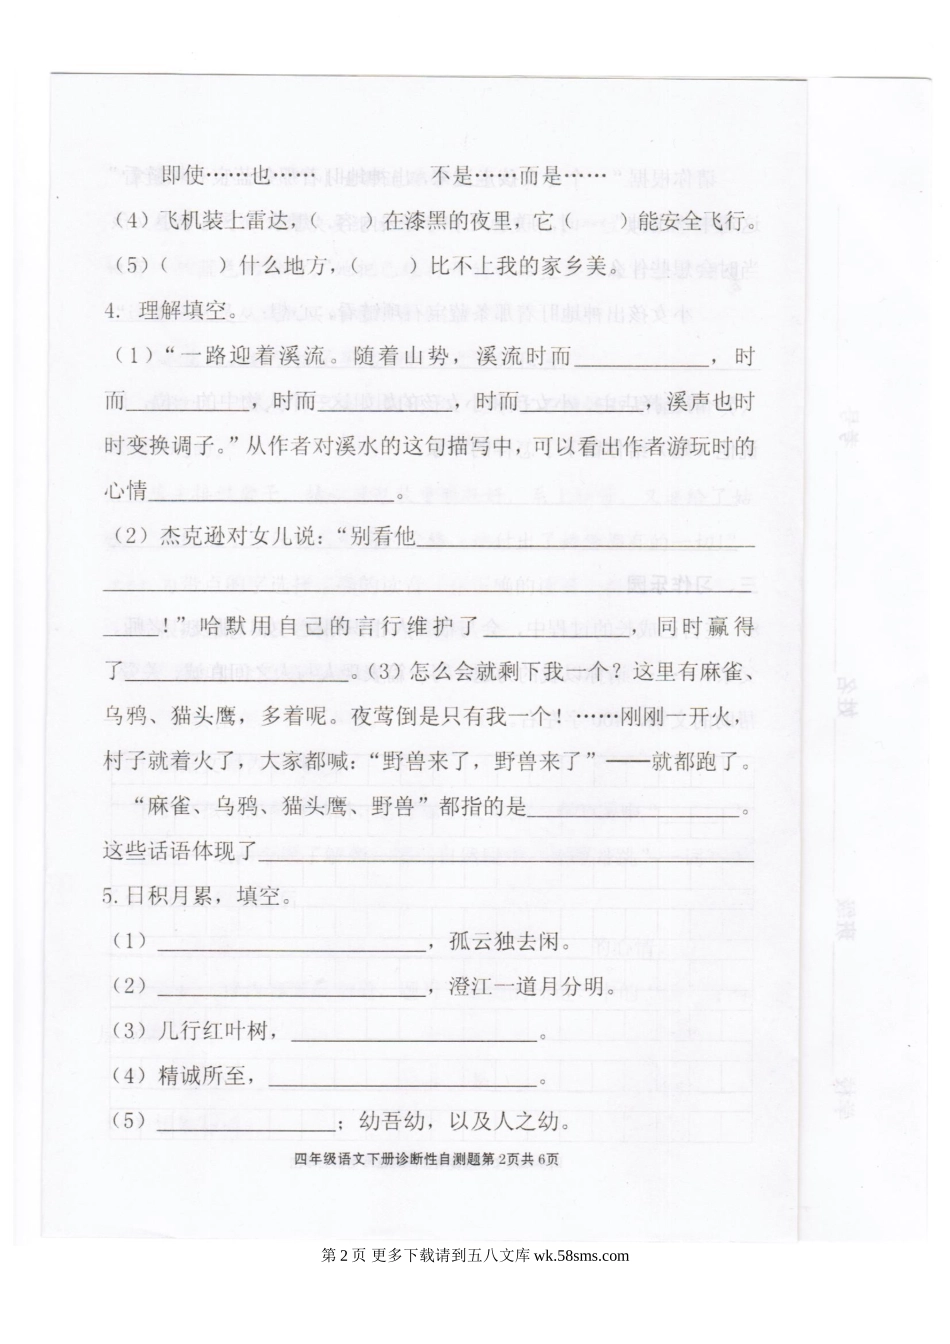 即使……也……　　不是……而是……
（4）飞机装上雷达，（　　）在漆黑的夜里，它（　　）能安全飞行。
（5）（　　）什么地方，（　　）比不上我的家乡美。
4. 理解填空。
（1）“一路迎着溪流。随着山势，溪流时而____________，时
而___________，时而____________，时而___________，溪声也时
时变换调子。”从作者对溪水的这句描写中，可以看出作者游玩时的
心情______________________。
（2）杰克逊对女儿说：“别看他______________________________
__________________________________________________________
_____！”哈默用自己的言行维护了_____________，同时赢得
了____________________。（3）怎么会就剩下我一个？这里有麻雀、
乌鸦、猫头鹰，多着呢。夜莺倒是只有我一个！……刚刚一开火，
村子就着火了，大家都喊：“野兽来了，野兽来了”——就都跑了。
“麻雀、乌鸦、猫头鹰、野兽”都指的是___________________。
这些话语体现了____________________________________________
5.日积月累，填空。
（1）________________________，孤云独去闲。
（2）________________________，澄江一道月分明。
（3）几行红叶树，______________________。
（4）精诚所至，________________________。
（5）________________；幼吾幼，以及人之幼。
四年级语文下册诊断性自测题第2页共6页
第 2 页 更多下载请到五八文库 wk.58sms.com